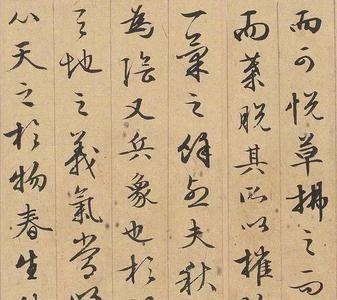 而可悅草拂之而
而葉脫其所以摧
一氣之餘烈夫秋
為陰又兵象也於
天地之義氣常以
心天之於物春生